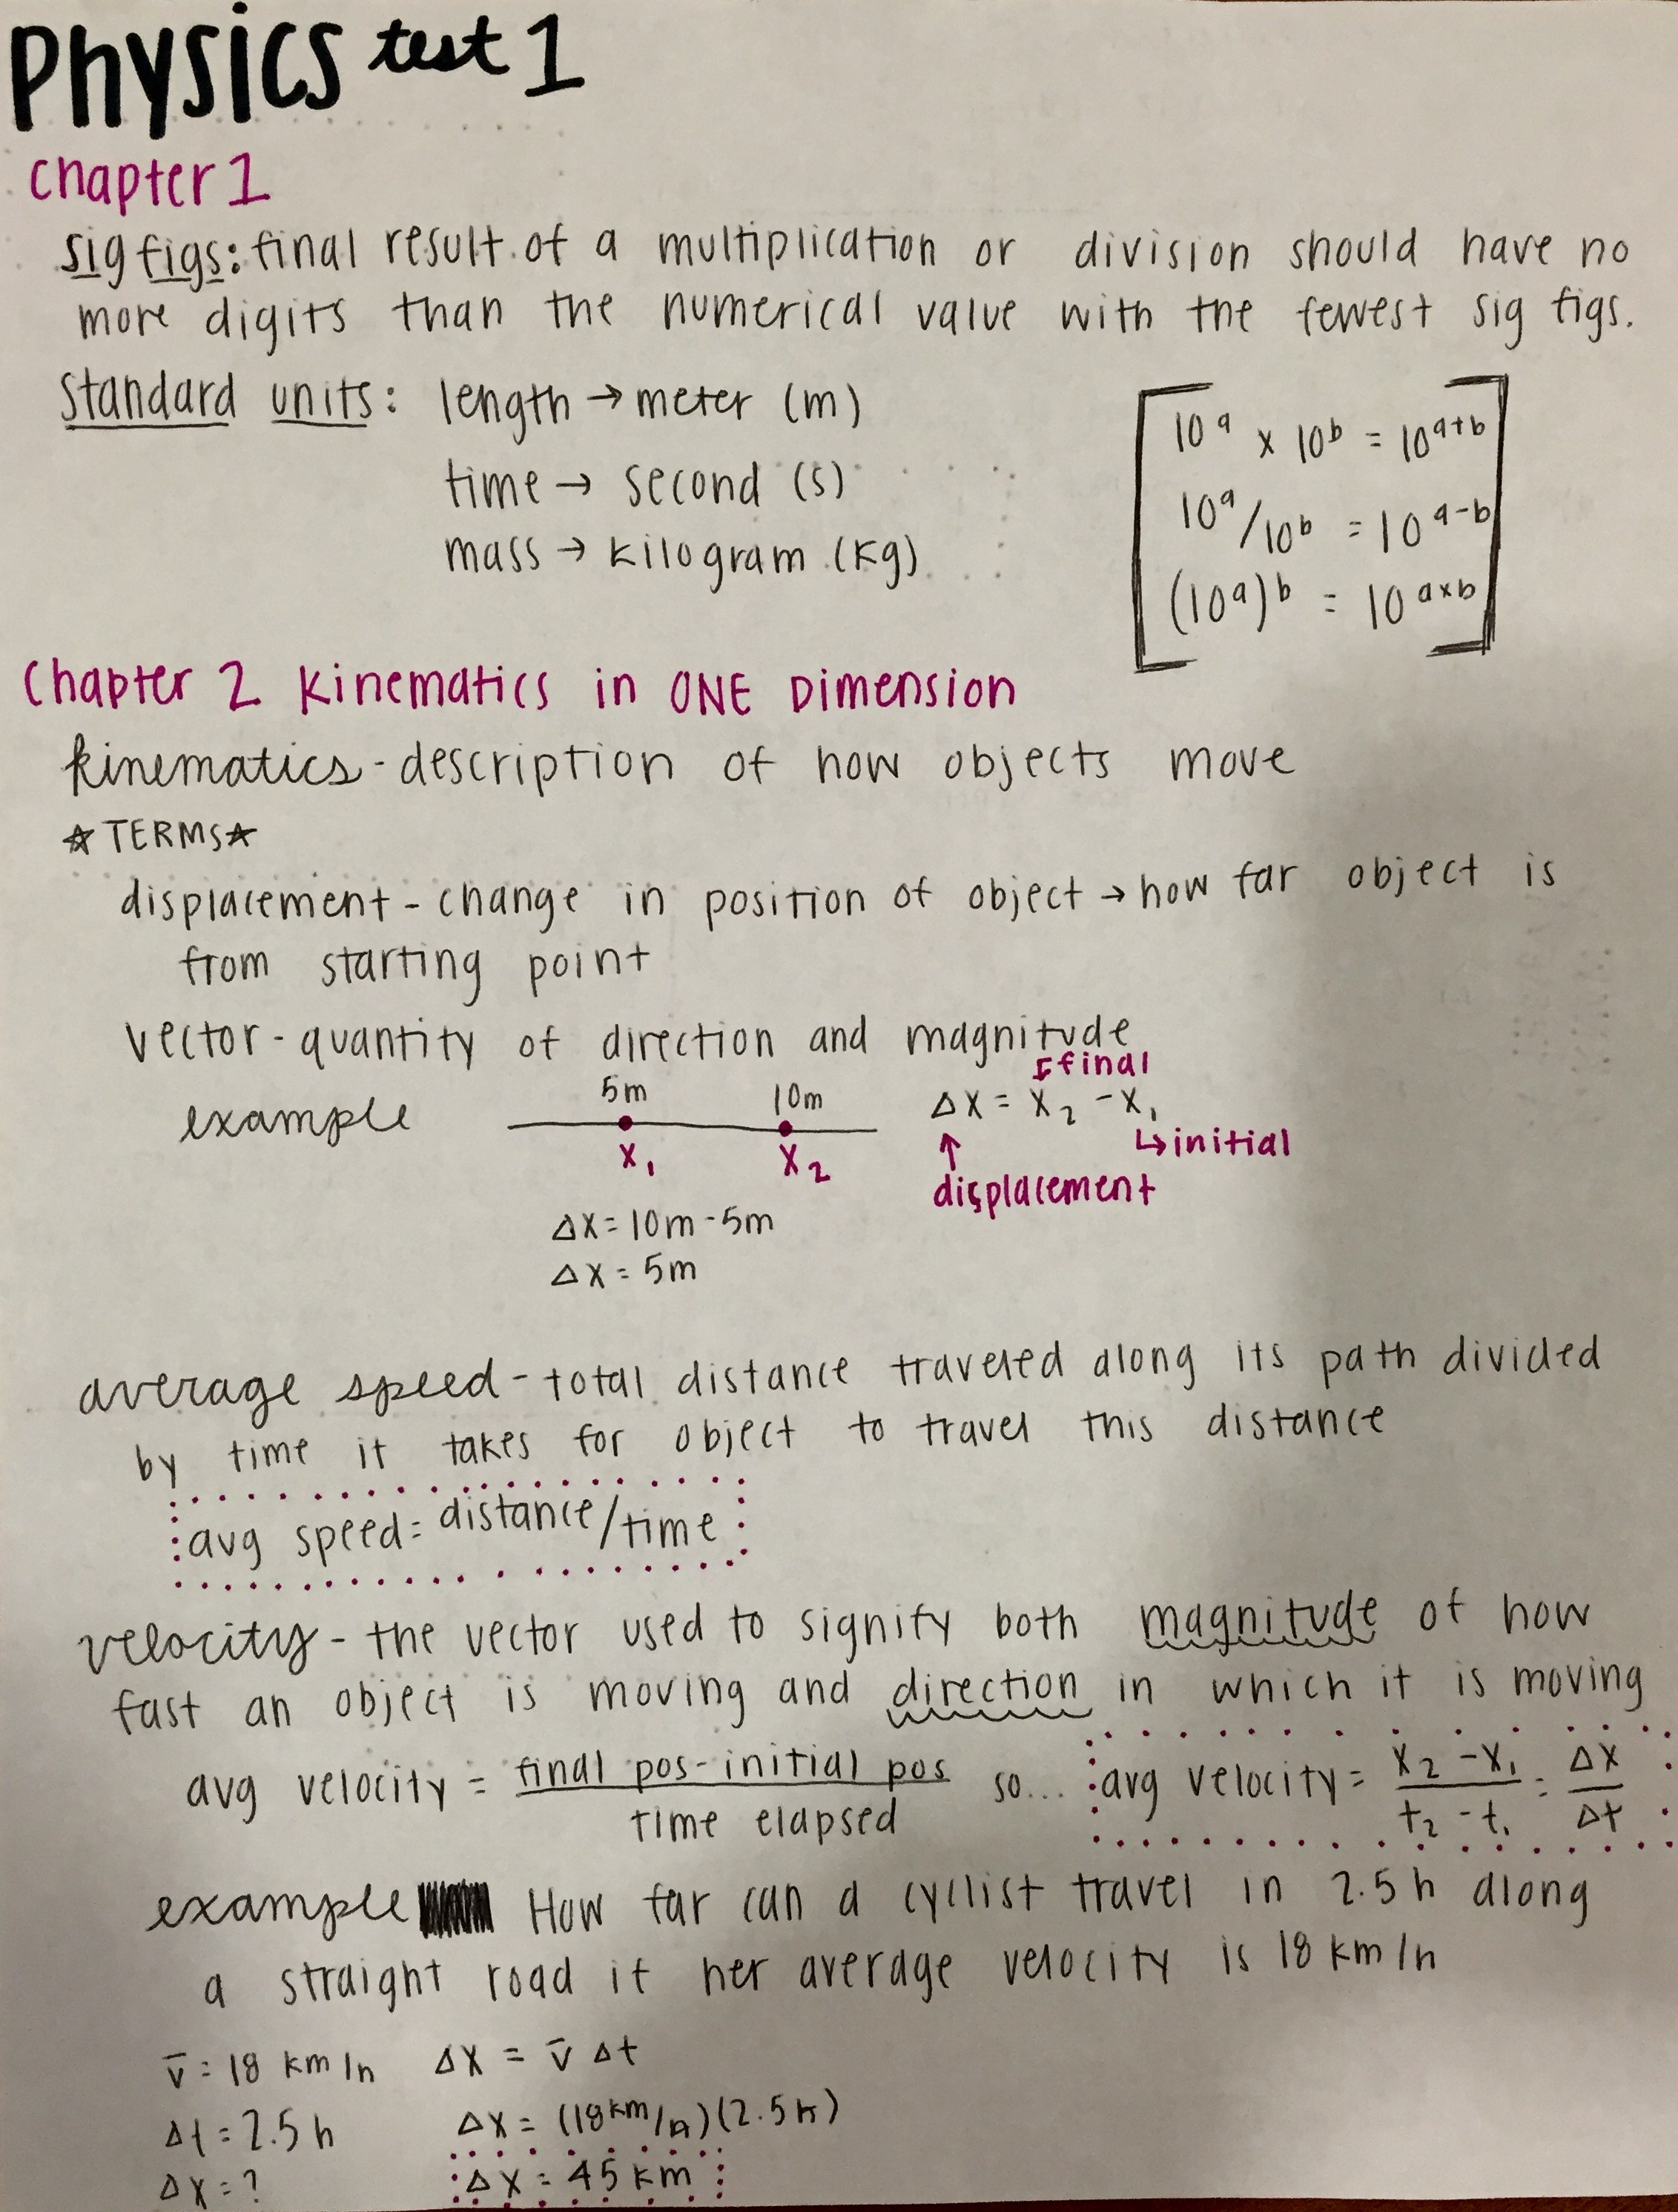 Physics test 1
Chapter 1
sig figs: final result of a multiplication or division should have no
more digits than the numerical value with the fewest sig figs.
standard units: length → meter (m)
time → second (s)
mass → kilogram (kg)
10^a x 10^b = 10^a+b
10^a/10^b = 10^a-b
(10^a)^b = 10^axb
Chapter 2 Kinematics in ONE Dimension
kinematics - description of how objects move
☆ TERMS ☆
displacement - change in position of object → how far object is
from starting point
vector - quantity of direction and magnitude
example
5m 10m
x₁ x₂
Δx = x₂ - x₁
final
initial
displacement
Δx = 10m - 5m
Δx = 5m
average speed - total distance traveled along its path divided
by time it takes for object to travel this distance
avg speed = distance/time
velocity - the vector used to signify both magnitude of how
fast an object is moving and direction in which it is moving
avg velocity = final pos - initial pos / time elapsed so... avg velocity = x₂ - x₁ / t₂ - t₁ = Δx / Δt
example How far can a cyclist travel in 2.5 h along
a straight road if her average velocity is 18 km/h
v̄ = 18 km/h Δx = v̄ Δt
Δt = 2.5 h Δx = (18 km/h)(2.5 h)
Δx = ? Δx = 45 km